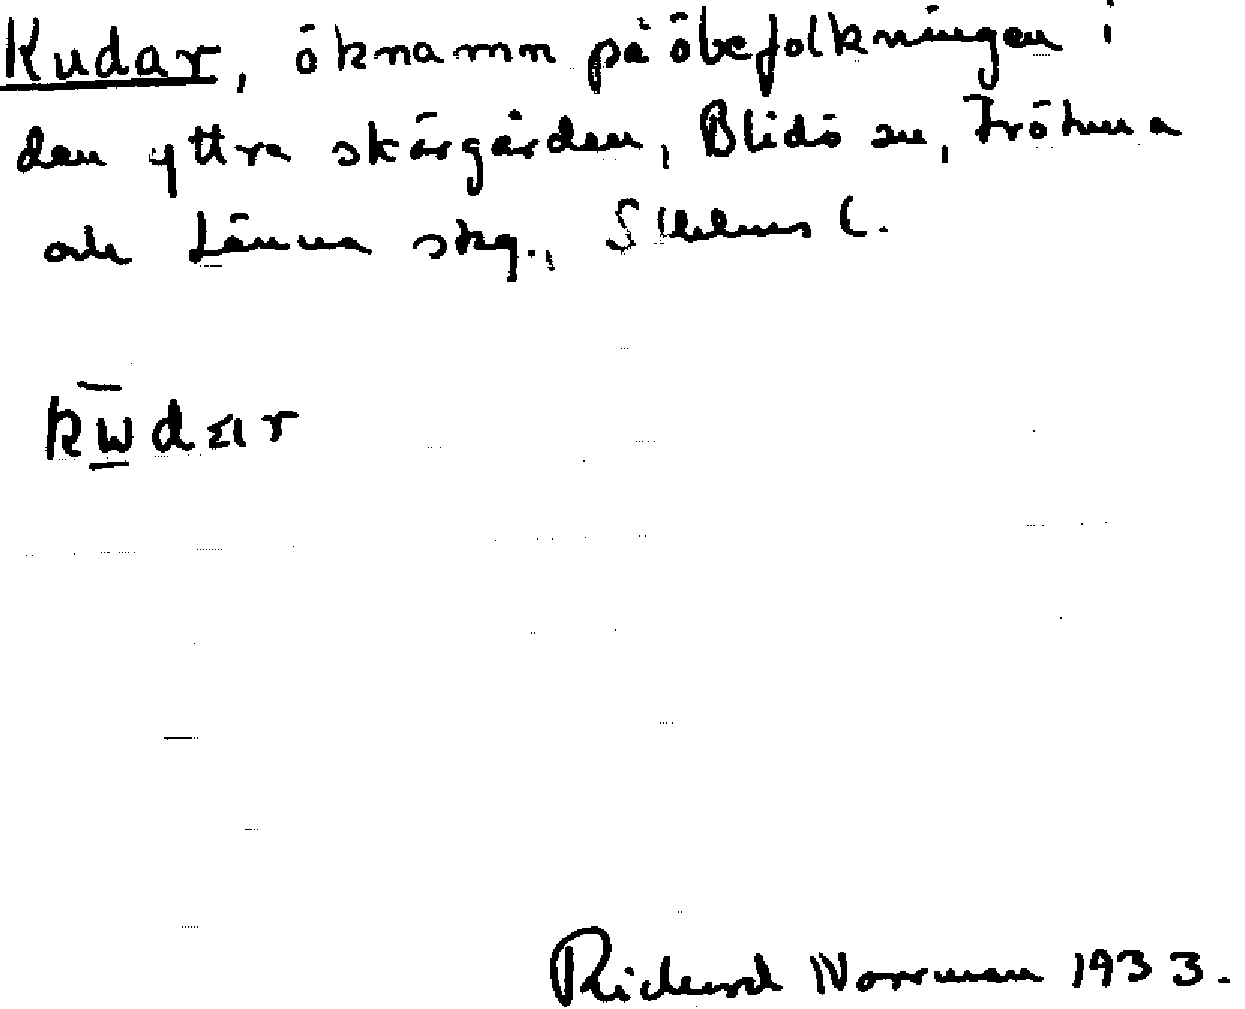 Kudar, öknamn på öbefolkningen i
den yttre skärgården, Blidö sn, Frötuna
och Länna skg., Sthlms l.
kw̲̄dar
Richard Norrman 1933.